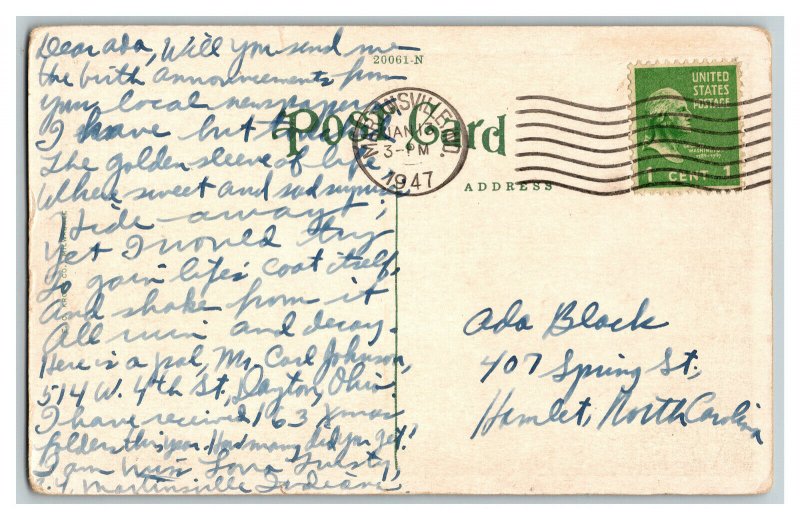 Dear Ada, Will you send me
the birth announcements from
your local newspapers.
I have but
The golden sleeve of life
Where sweet and sad
Hide away;
Yet I would try
To gain life's coat itself,
And shake from it
All ruin and decay.
Here is a pal, Mr. Carl Johnson,
514 W. 4th St., Dayton, Ohio
I have received 163 Xmas
folders this year. How many did you get?
I am Miss Lora Trusty,
Martinsville Indiana
20061-N
Post Card
ADDRESS
MARTINSVILLE IND.
JAN
3-PM
1947
UNITED
STATES
POSTAGE
WASHINGTON
1 CENT 1
Ada Black
407 Spring St.,
Hamlet, North Carolina